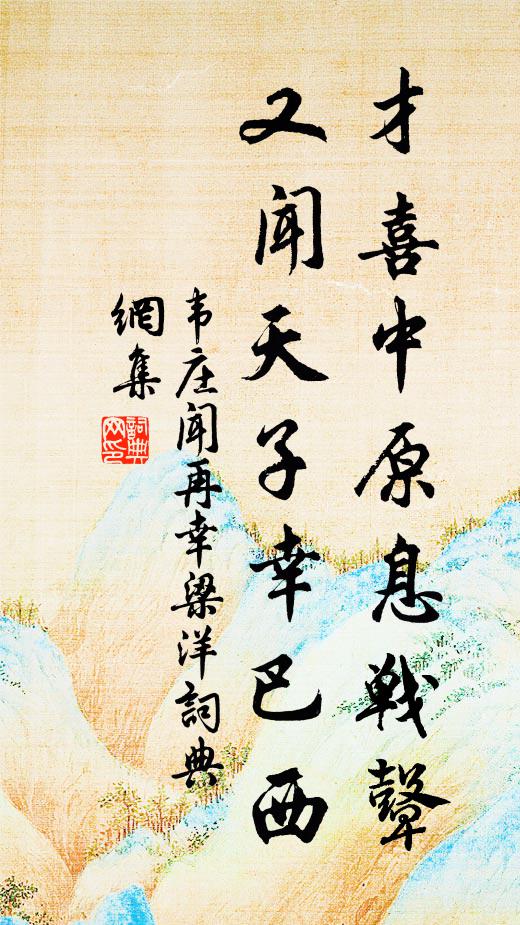 才喜中原息戰鼙
又聞天子幸巴西
韦庄聞再幸梁洋詞典
網集
詞典
网印